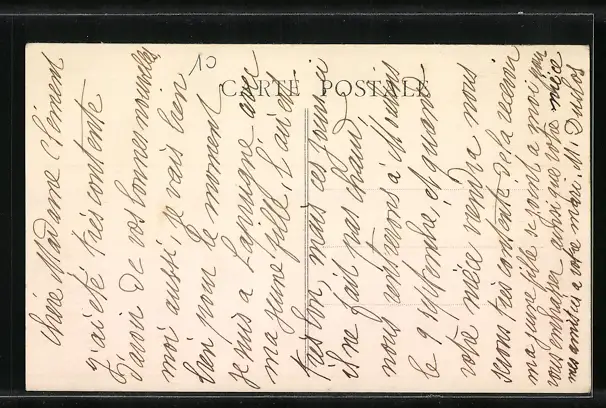 CARTE POSTALE
10
Chère Madame Clément
J'ai été très contente
d'avoir de vos bonnes nouvelles
moi aussi, je vais bien
bien pour le moment
je suis a avec
ma jeune fille, l'air est
très bon, mais ces jours ci
il ne fait pas chaud
nous rentrerons à
le 9 septembre, et quand
votre nièce viendra nous
serons très contente de la recevoir
ma jeune fille se joint a moi pour
vous embrasser ainsi que votre nièce
mes amitiés a votre mari. M. Duclos